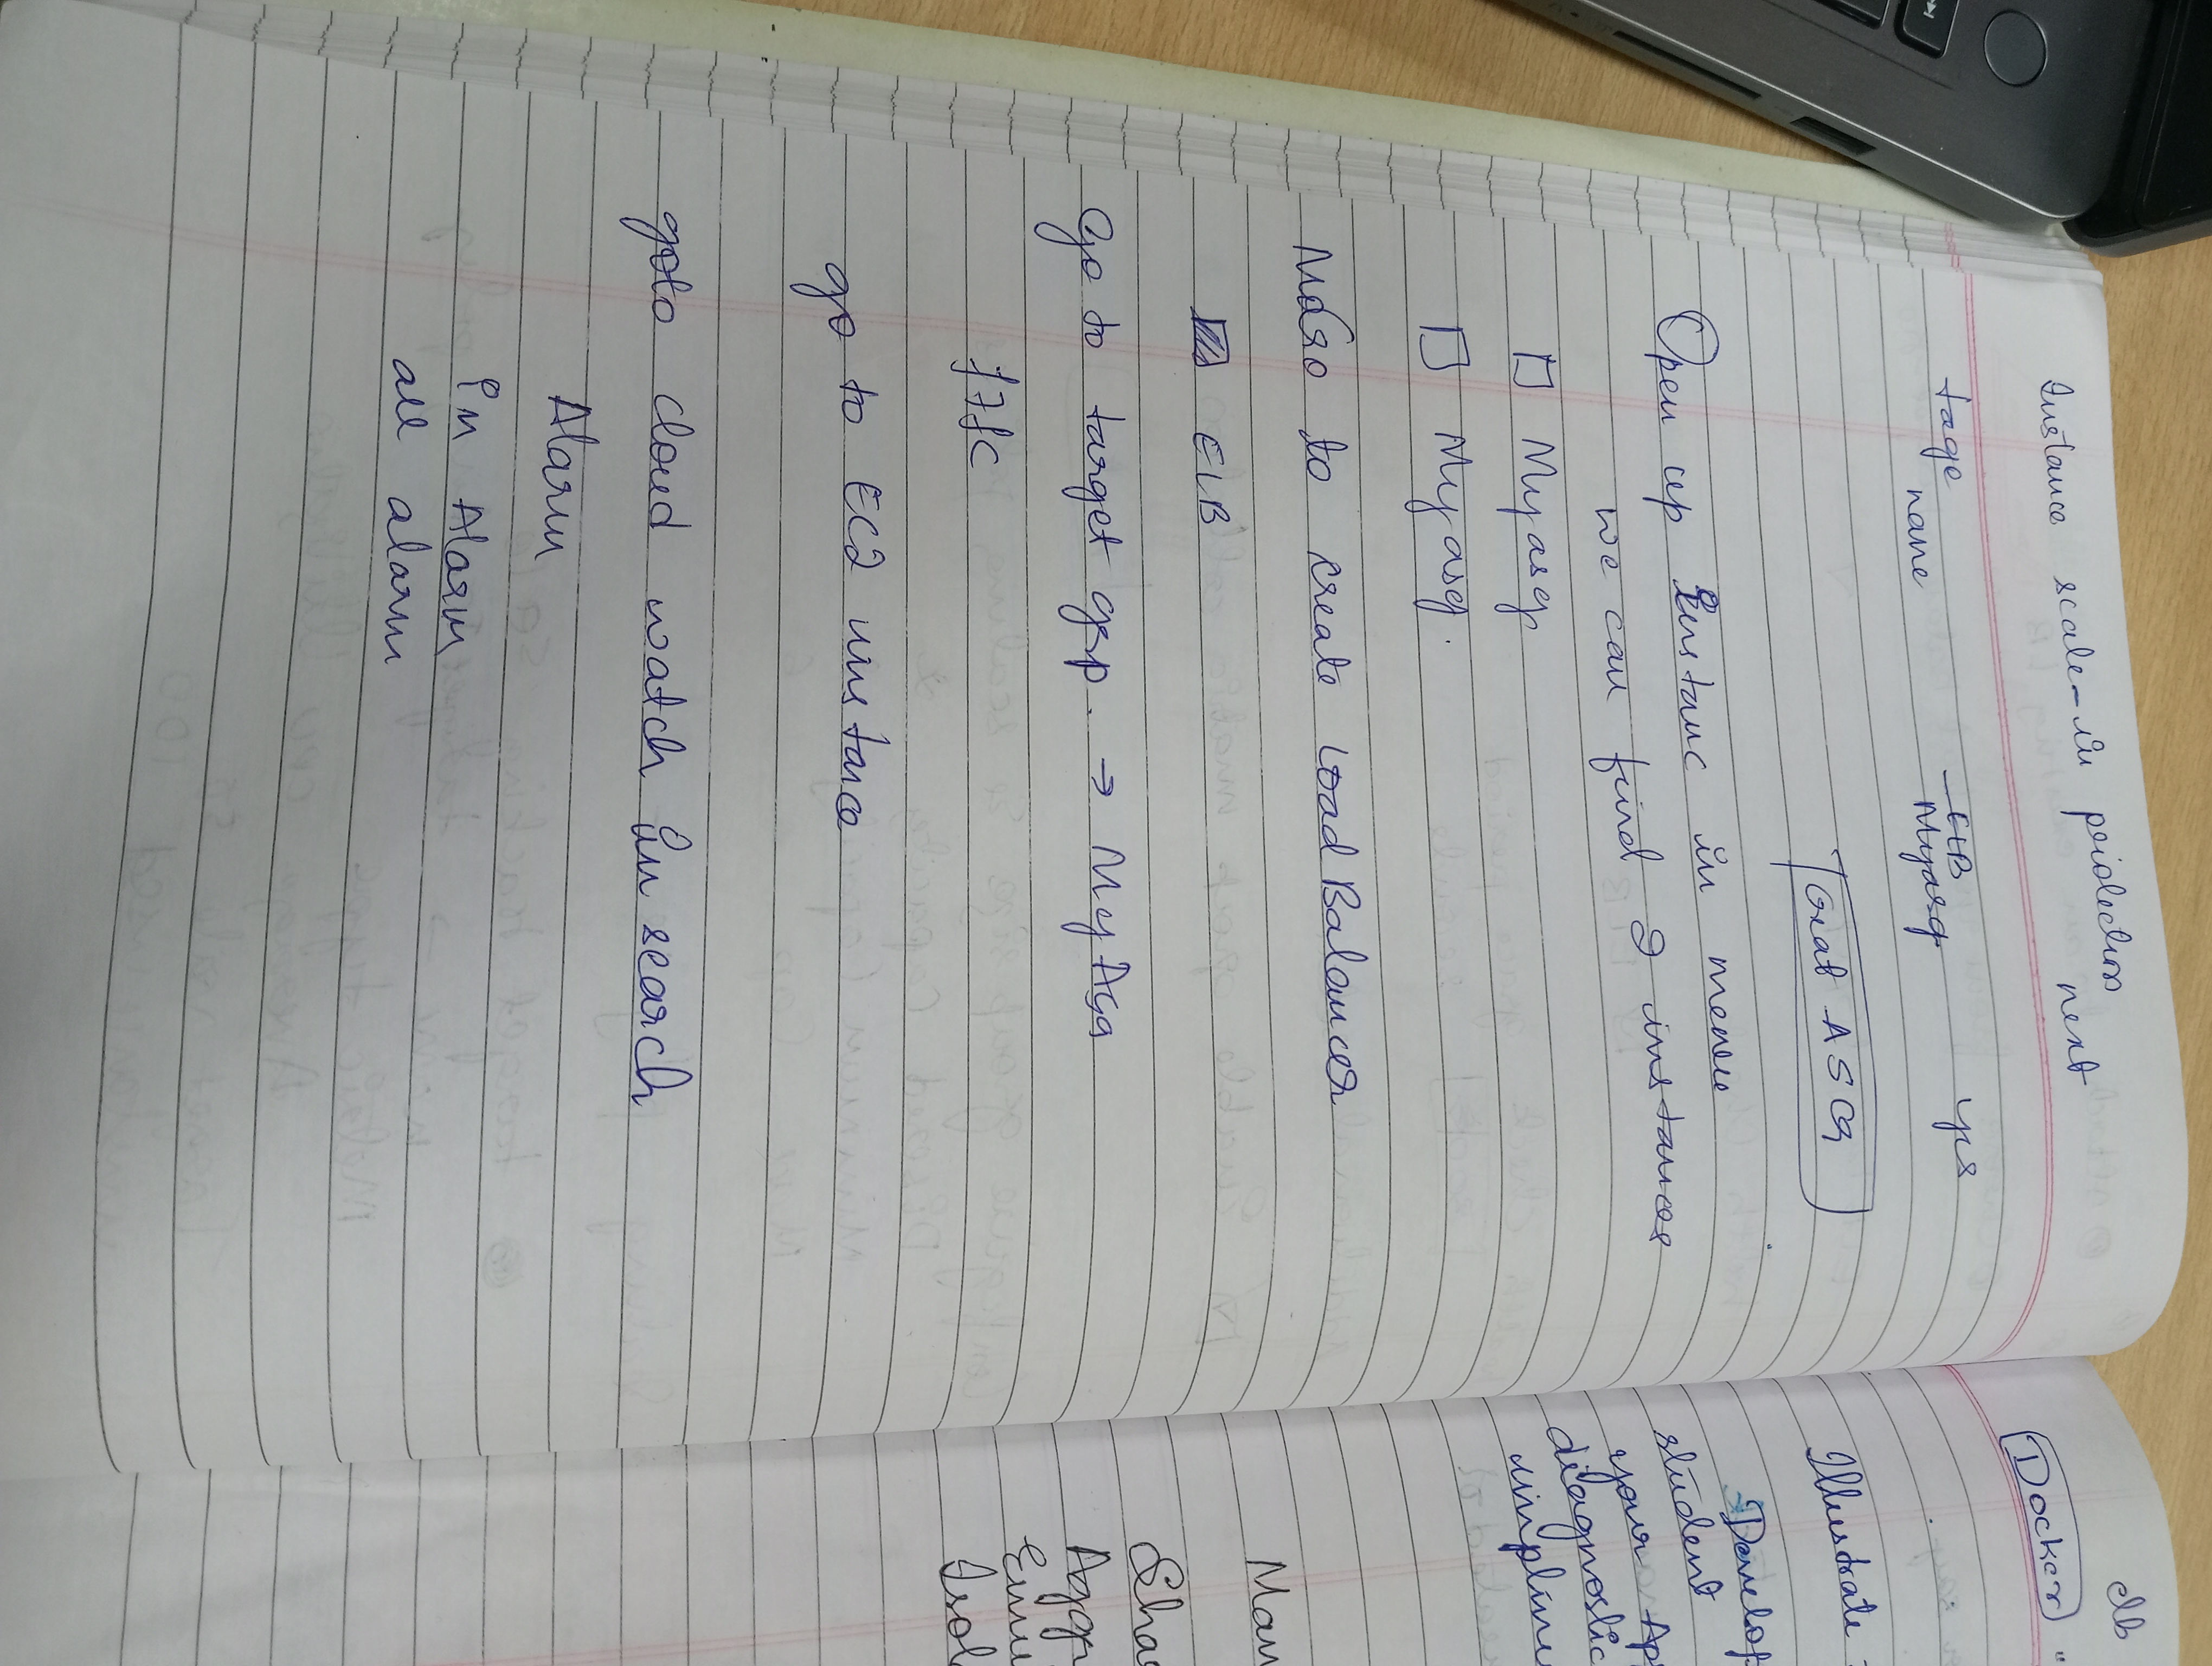 Instance scale-in protection
next
tage name ELB yes
Myasg
Creat ASG
Open up Instanc in menu
we can find 2 instances
Myasg
Myasg.
to create Load Balancer
ELB
Go to target grp. → MyASG
go to EC2 instance
goto cloud watch in search
Alarm
In Alarm
all alarm
Docker
Illustrate
Develop
student
your Ap
diagnostic
implime
Man
Sha